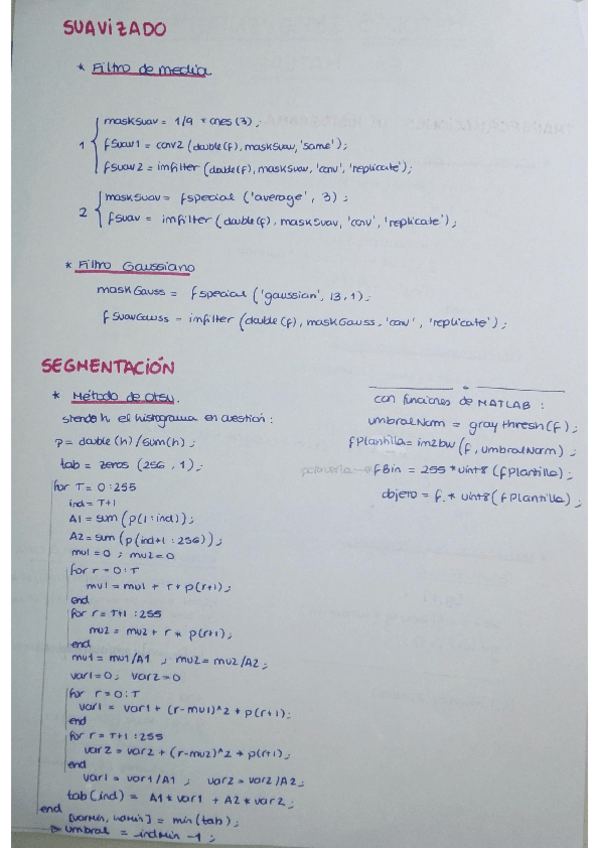 SUAVIZADO
* Filtro de media
1 { maskSuav = 1/9 * ones(3);
fSuav1 = conv2 (double(f), maskSuav, 'same');
fSuav2 = imfilter (double(f), maskSuav, 'conv', 'replicate');
2 { maskSuav = fspecial ('average', 3);
fSuav = imfilter (double(f), maskSuav, 'conv', 'replicate');
* Filtro Gaussiano
maskGauss = fspecial ('gaussian', 13, 1);
fSuavGauss = imfilter (double(f), maskGauss, 'conv', 'replicate');
SEGMENTACIÓN
* Método de Otsu.
siendo h el histograma en cuestión:
p = double(h) / sum(h);
tab = zeros (256, 1);
for T = 0:255
ind = T+1
A1 = sum (p(1:ind));
A2 = sum (p(ind+1:256));
mu1 = 0; mu2 = 0
for r = 0:T
mu1 = mu1 + r * p(r+1);
end
for r = T+1:255
mu2 = mu2 + r * p(r+1);
end
mu1 = mu1/A1; mu2 = mu2/A2;
var1 = 0; var2 = 0
for r = 0:T
var1 = var1 + (r-mu1)^2 * p(r+1);
end
for r = T+1:255
var2 = var2 + (r-mu2)^2 * p(r+1);
end
var1 = var1/A1; var2 = var2/A2;
tab(ind) = A1 * var1 + A2 * var2;
end
[varMin, indMin] = min(tab);
umbral = indMin - 1;
con funciones de MATLAB:
umbralNorm = graythresh(f);
fPlantilla = im2bw (f, umbralNorm);
fBin = 255 * uint8 (fPlantilla);
objeto = f .* uint8 (fPlantilla);